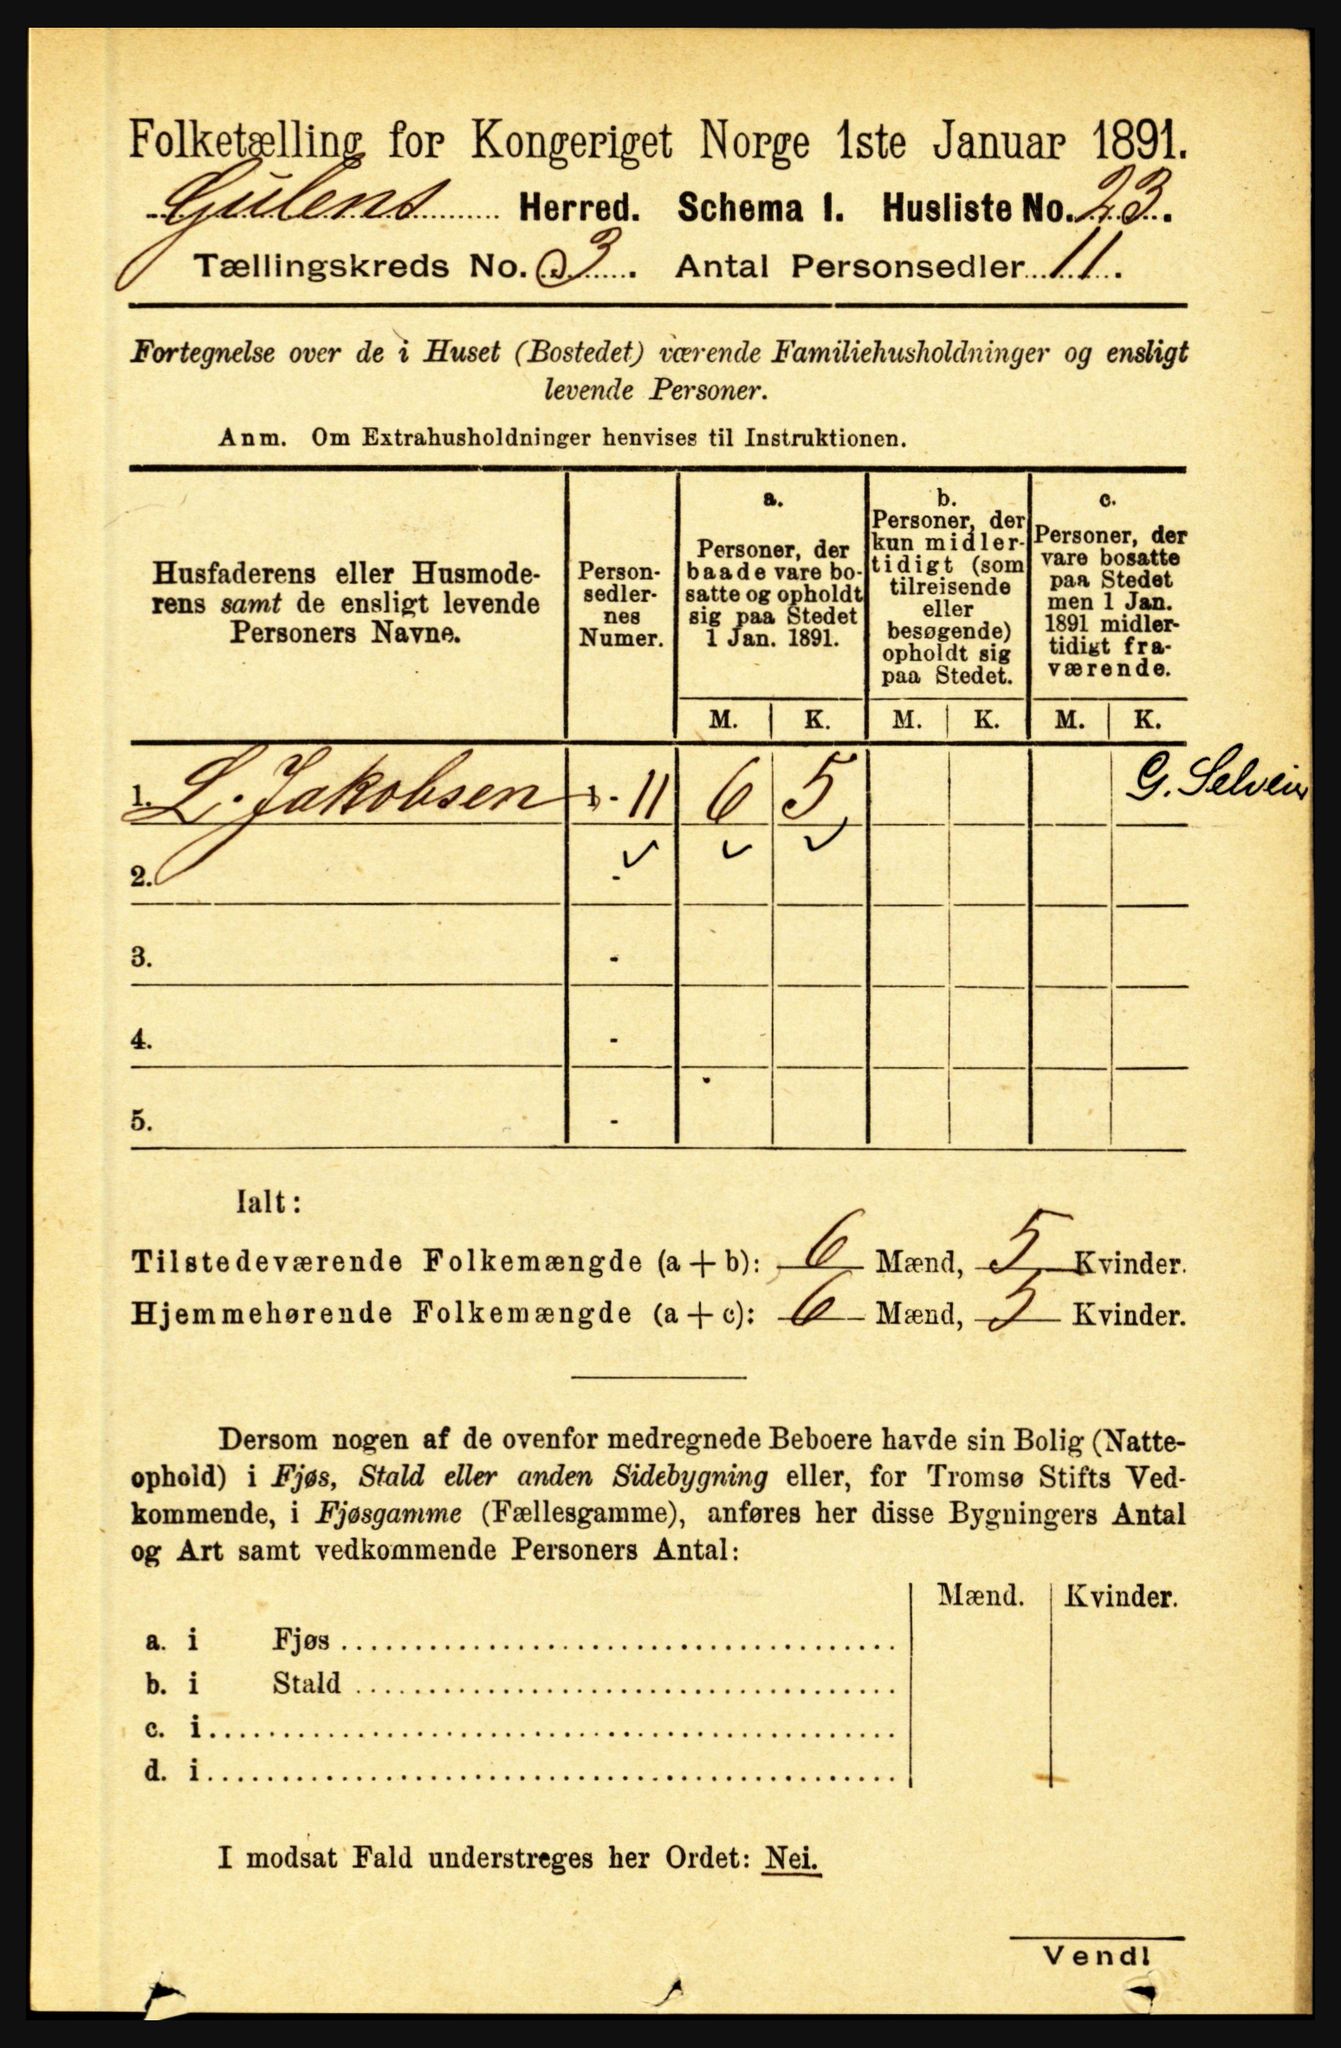 Folketælling for Kongeriget Norge 1ste Januar 1891.
Gulens Herred. Schema I. Husliste No. 23.
Tællingskreds No. 3. Antal Personsedler 11.
Fortegnelse over de i Huset (Bostedet) værende Familiehusholdninger og ensligt
levende Personer.
Anm. Om Extrahusholdninger henvises til Instruktionen.
Husfaderens eller Husmode-
rens samt de ensligt levende
Personers Navne.
Person-
sedler-
nes
Numer.
a.
Personer, der
baade vare bo-
satte og opholdt
sig paa Stedet
1 Jan. 1891.
b.
Personer, der
kun midler-
tidigt (som
tilreisende
eller
besøgende)
opholdt sig
paa Stedet.
c.
Personer, der
vare bosatte
paa Stedet
men 1 Jan.
1891 midler-
tidigt fra-
værende.
M. K. M. K. M. K.
1. L. Jakobsen 1 - 11 6 5 G. Selvein
2. -
3. -
4. -
5. -
Ialt:
Tilstedeværende Folkemængde (a + b): 6 Mænd, 5 Kvinder.
Hjemmehørende Folkemængde (a + c): 6 Mænd, 5 Kvinder.
Dersom nogen af de ovenfor medregnede Beboere havde sin Bolig (Natte-
ophold) i Fjøs, Stald eller anden Sidebygning eller, for Tromsø Stifts Ved-
kommende, i Fjøsgamme (Fællesgamme), anføres her disse Bygningers Antal
og Art samt vedkommende Personers Antal:
Mænd. Kvinder.
a. i Fjøs
b. i Stald
c. i
d. i
I modsat Fald understreges her Ordet: Nei.
Vend!